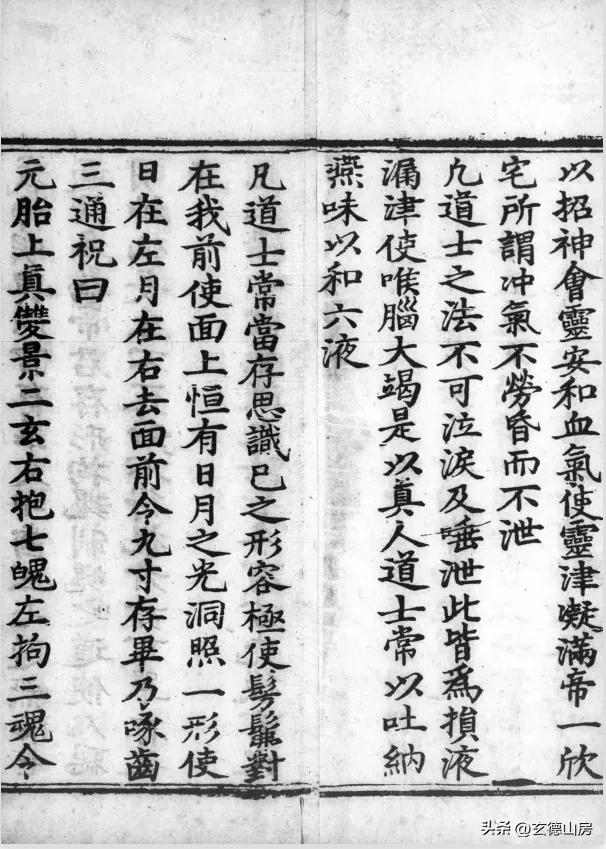 以招神會靈安和血氣使靈津凝滿帝一欣
宅所謂冲氣不勞昏而不泄
凢道士之法不可泣淚及唾泄此皆為損液
漏津使喉腦大竭是以真人道士常以吐納
鷰味以和六液
凡道士常當存思識巳之形容極使髣髴對
在我前使面上恒有日月之光洞照一形使
日在左月在右去面前令九寸存畢乃啄齒
三通祝曰
元胎上真雙景二玄右抱七魄左拘三魂令
头条 @玄德山房